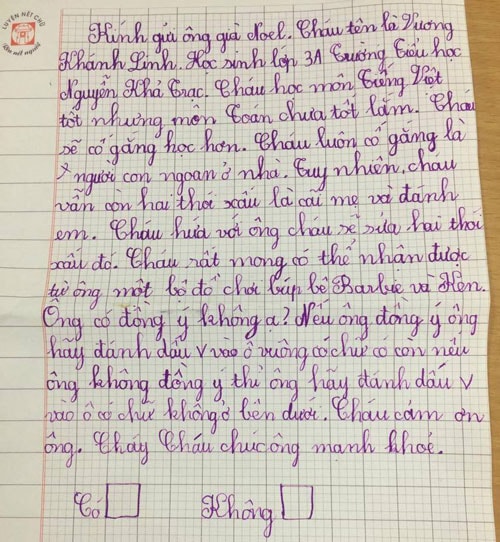 LUYỆN NÉT CHỮ
Rèn nết người
Kính gửi ông già Noel. Cháu tên là Vương
Khánh Linh. Học sinh lớp 3A Trường Tiểu học
Nguyễn Khả Trạc. Cháu học môn Tiếng Việt
tốt nhưng môn Toán chưa tốt lắm. Cháu
sẽ cố gắng học hơn. Cháu luôn cố gắng là
người con ngoan ở nhà. Tuy nhiên, cháu
vẫn còn hai thói xấu là cãi mẹ và đánh
em. Cháu hứa với ông cháu sẽ sửa hai thói
xấu đó. Cháu rất mong có thể nhận được
từ ông một bộ đồ chơi búp bê Barbie và Ken.
Ông có đồng ý không ạ? Nếu ông đồng ý ông
hãy đánh dấu V vào ô vuông có chữ có còn nếu
ông không đồng ý thì ông hãy đánh dấu V
vào ô có chữ không ở bên dưới. Cháu cảm ơn
ông. Cháy Cháu chúc ông mạnh khoẻ.
Có Không